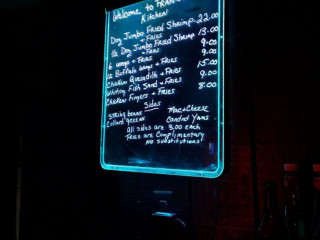 Welcome to FRAN
Kitchen
Doz Jumbo Fried Shrimp - 22.00
+ Fries
½ Doz Jumbo Fried Shrimp 13.00
+ Fries 9.00
6 wings + Fries 9.00
12 Buffalo wings + Fries 15.00
Chicken Quesadilla + Fries 9.00
Whiting Fish Sand + Fries 8.00
Chicken Fingers + Fries
Sides
String beans Mac + Cheese
Collard greens Candied Yams
All sides are 3.00 each
Fries are Complimentary
No substitutions!